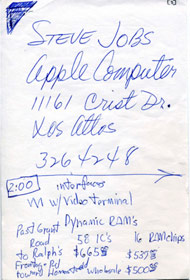 STEVE JOBS
Apple Computer
11161 Crist Dr.
Los Altos
326 4248
2:00 interfaces
w/Video terminal
Dynamic RAM's
Past Grant 58 IC's 16 RAM chips
Road
to Ralph's $665 $537
toward Homestead wholesale $500